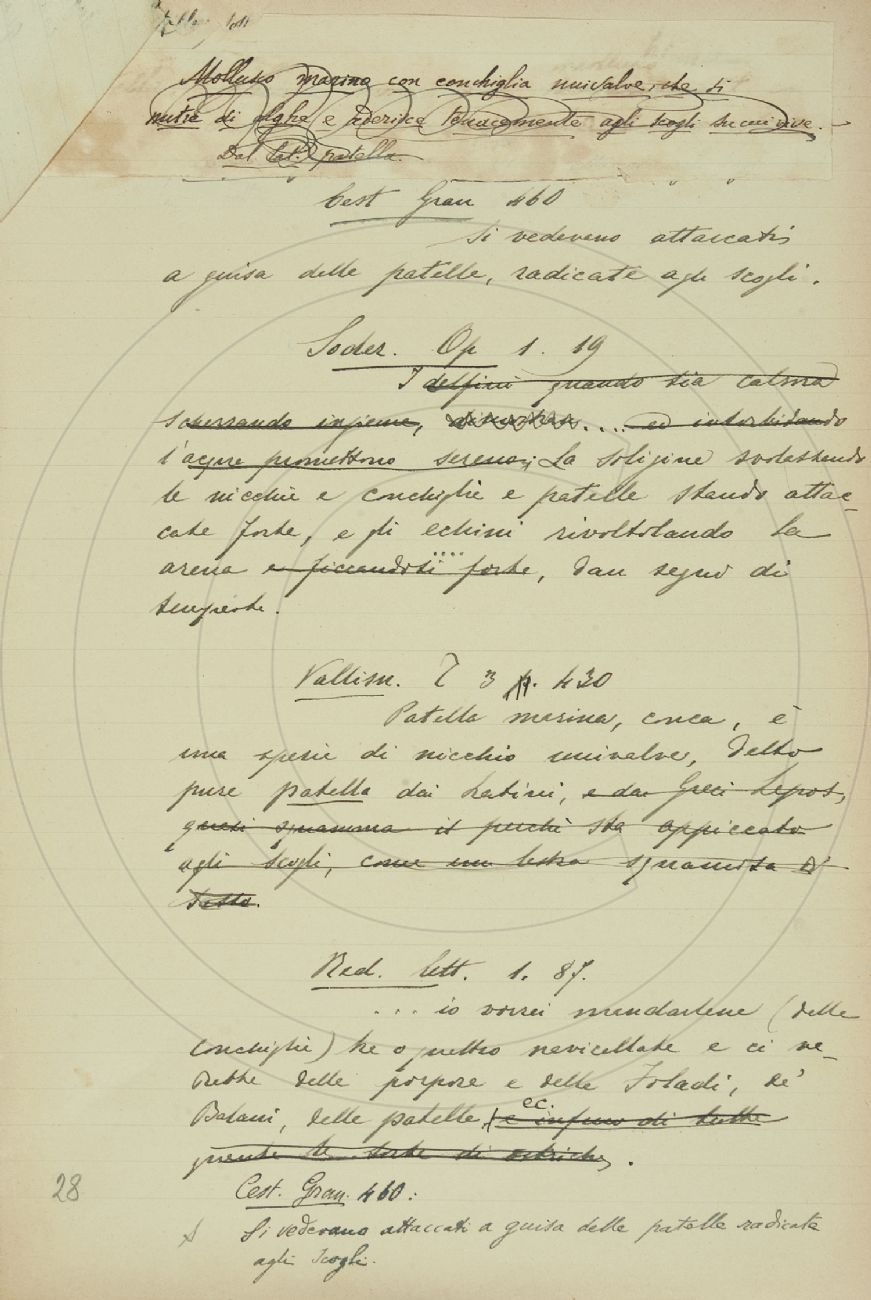 Mollusco marino con conchiglia univalve, che si
nutre di alghe e aderisce tenacemente agli scogli
Dal lat. patella.
Cest Gran 460
Si vedeveno attaccati
a guisa delle patelle, radicate agli scogli.
Soder. Op 1. 19
I delfini quando sia calma
scherzando insieme, .... ed intorbidando
l'acque promettono sereno; La soligine svolastrando
le nicchie e conchiglie e patelle stando attac-
cate forte, e gli echini rivoltolando la
arena e ficcandosi forte, dan segno di
tempeste.
Vallisn. T 3 p. 430
Patella marina, conca, è
una spezie di nicchio univalve, detto
pure patella dai Latini, e dai Greci Lepas,
quasi squamma perchè sta appiccato
agli scogli, come una squamosa
Red. Lett. 1. 87.
... io vorrei mandartene (delle
conchiglie) tre o quattro navicellate e ci ve-
drette delle porpore e delle Foladi, de'
Balani, delle patelle, ec. e infino di tutte
quante le sorte di ostriche.
Cest. Gran. 460:
Si vedevano attaccati a guisa delle patelle radicate
agli Scogli.
28